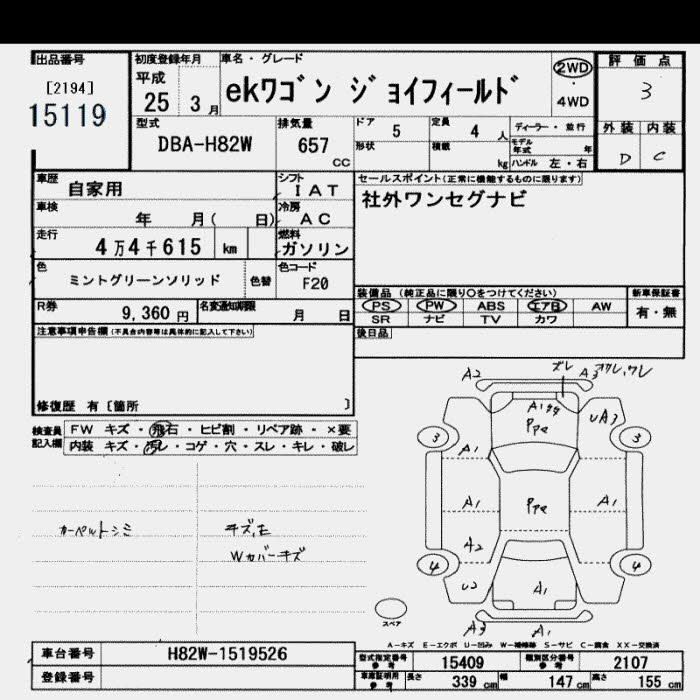 出品番号
[2194]
15119
初度登録年月
平成
25 3 月
車名・グレード
ekワゴン ジョイフィールド
2WD
・
4WD
評価点
3
外装 内装
D C
型式
DBA-H82W
排気量
657
cc
ドア
5
定員
4 人
ディーラー・並行
モデル年式 年
形状
積載
kg
ハンドル 左・右
車歴
自家用
シフト
IAT
車検
年 月( 日)
冷房
AC
走行
4万4千615 km
燃料
ガソリン
色
ミントグリーンソリッド
色替
色コード
F20
R券
9,360 円
名変通知期限
月 日
セールスポイント(正常に機能するものに限ります)
社外ワンセグナビ
装備品 (純正品に限り○をつけてください)
PS PW ABS エアB AW
SR ナビ TV カワ
新車保証書
有・無
後日品
注意事項申告欄(不具合内容等は具体的に記入して下さい)
修復歴 有〔箇所 〕
検査員記入欄
FW キズ・飛石・ヒビ割・リペア跡・×要
内装 キズ・汚レ・コゲ・穴・スレ・キレ・破レ
カーペルトシミ
キズ,E
Wカバーキズ
A2
ズレ
A3
3
A1
uA3
3
A1
A1
A1
A2
4
U2
A1
4
スペア
A3
A1
A-キズ E-エクボ U-凹み W-補修跡 S-サビ C-腐食 XX-交換済
車台番号
H82W-1519526
登録番号
型式指定番号 参考
15409
類別区分番号 参考
2107
車庫証明用 参考
長さ 339 cm 幅 147 cm 高さ 155 cm